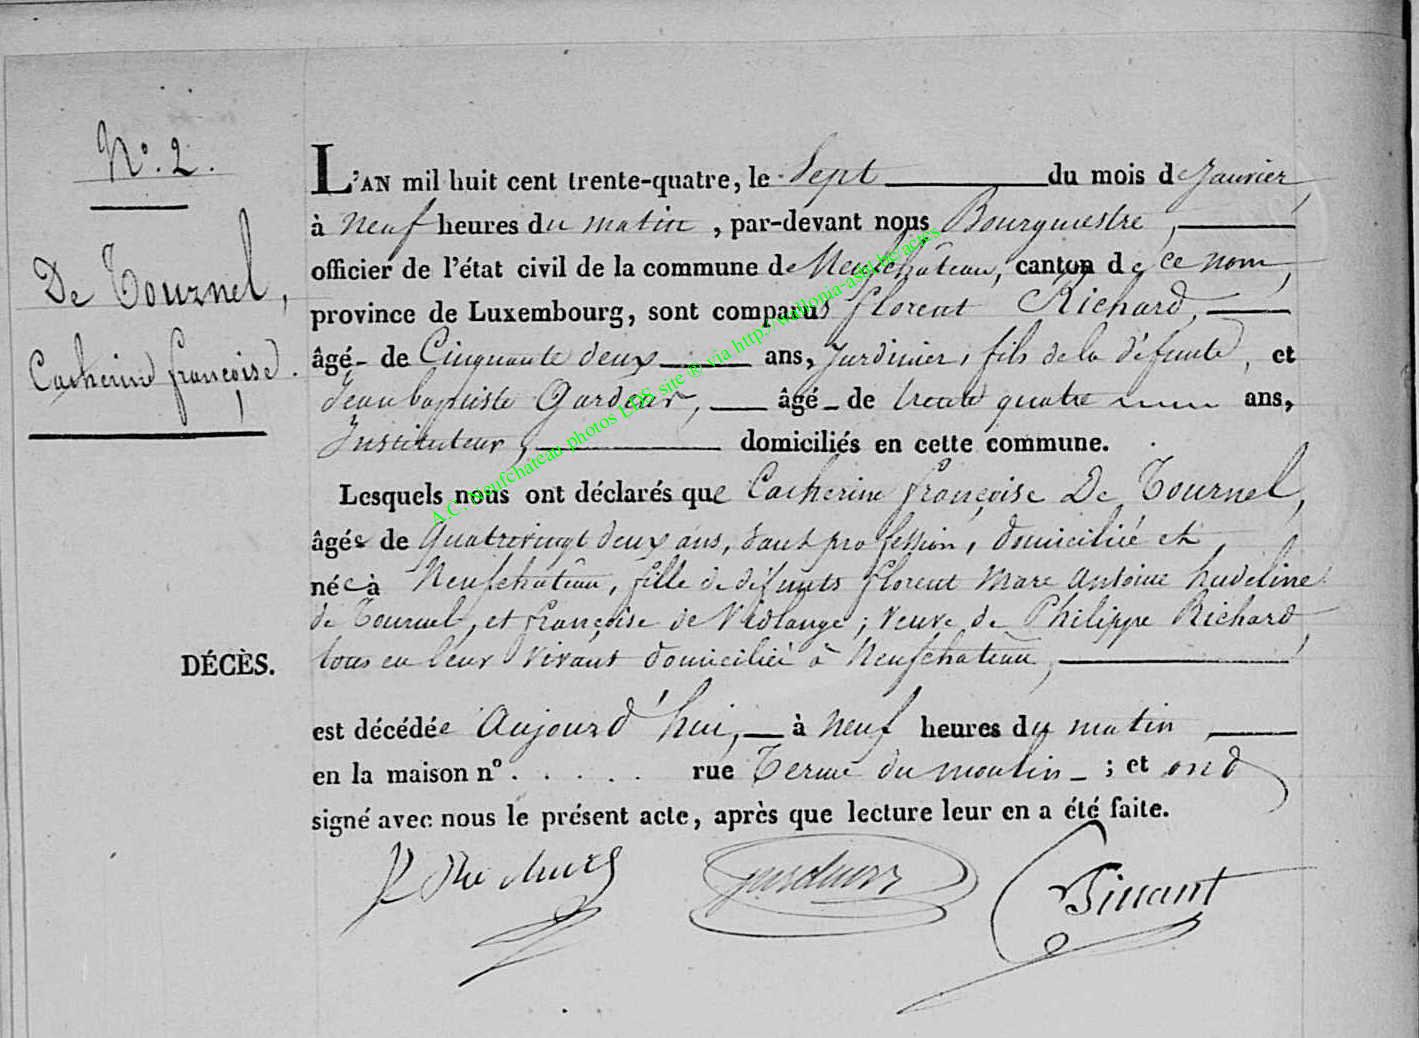 N°. 2.
De Tournel,
Catherine françoise.
DÉCÈS.
L'AN mil huit cent trente-quatre, le Sept du mois de Janvier,
à neuf heures du matin, par-devant nous Bourgmestre,
officier de l'état civil de la commune de Neufchâteau, canton de ce nom,
province de Luxembourg, sont comparus florent Richard,
âgé de Cinquante deux ans, Jardinier, fils de la défunte, et
Jean baptiste Gardeur, âgé de trente quatre ans,
Instituteur, domiciliés en cette commune.
Lesquels nous ont déclarés que Catherine françoise De Tournel,
âgée de Quatrevingt deux ans, sans profession, domiciliée et
née à Neufchateau, fille de défunts florent Marc Antoine hudeline
de Tournel, et françoise de Vidlange; veuve de Philippe Richard,
tous en leur vivant domicilié à Neufchateau,
est décédée Aujourd'hui, à neuf heures du matin
en la maison n° . . . . . rue Terme du moulin ; et ond
signé avec nous le présent acte, après que lecture leur en a été faite.
A.C. Neufchateau photos LDS site ® via http://wallonia-asbl.be/actes